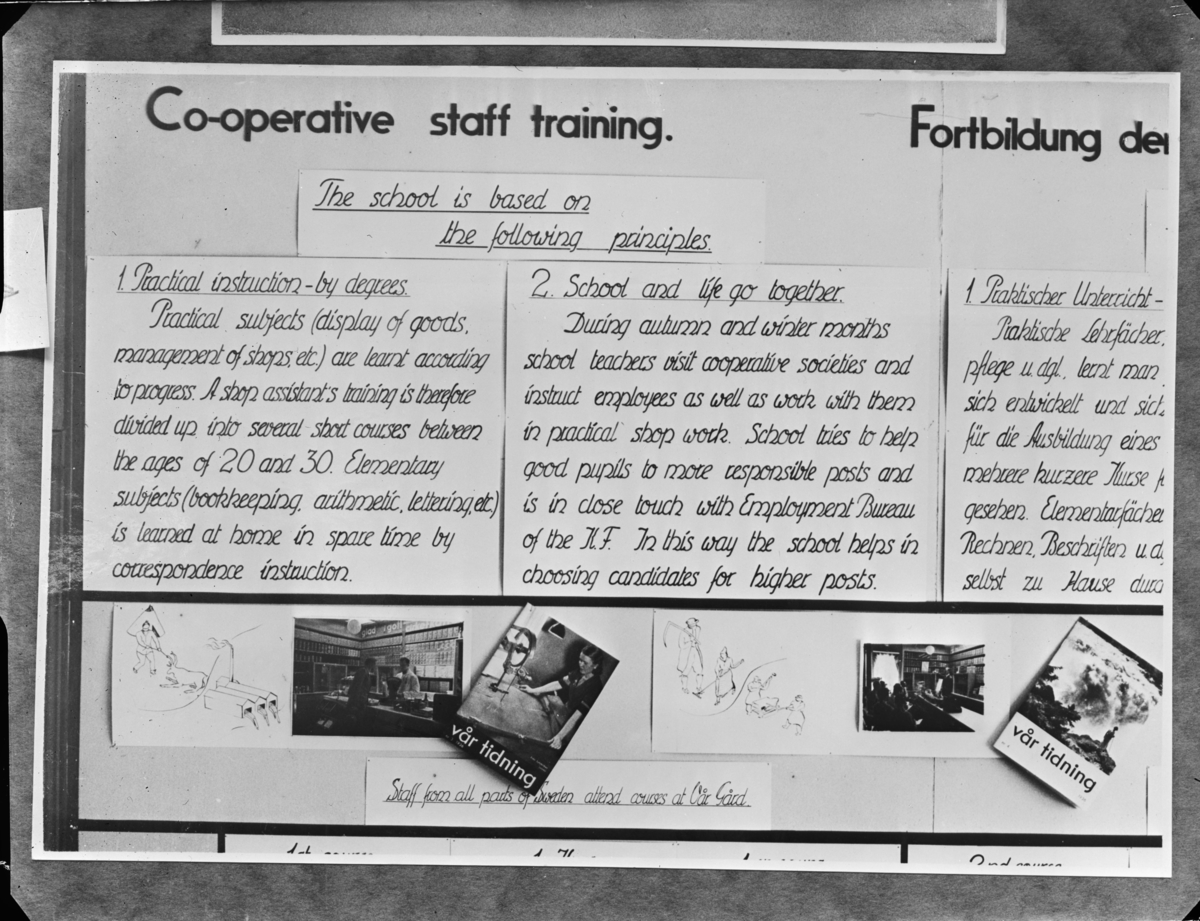 Co-operative staff training.
Fortbildung der
The school is based on
the following principles.
1. Practical instruction - by degrees.
Practical subjects (display of goods,
management of shops, etc.) are learnt according
to progress. A shop assistant's training is therefore
divided up into several short courses between
the ages of 20 and 30. Elementary
subjects (bookkeeping, arithmetic, lettering, etc.)
is learned at home in spare time by
correspondence instruction.
2. School and life go together.
During autumn and winter months
school teachers visit cooperative societies and
instruct employees as well as work with them
in practical shop work. School tries to help
good pupils to more responsible posts and
is in close touch with Employment Bureau
of the K.F. In this way the school helps in
choosing candidates for higher posts.
1. Praktischer Unterricht -
Praktische Lehrfächer,
pflege u. dgl., lernt man
sich entwickelt und sich
für die Ausbildung eines
mehrere kurzere Kurse
gesehen. Elementarfächer
Rechnen, Beschriften u. d
selbst zu Hause durc
vår tidning
vår tidning
Staff from all parts of Sweden attend courses at Vår Gård.
1st course
2nd course